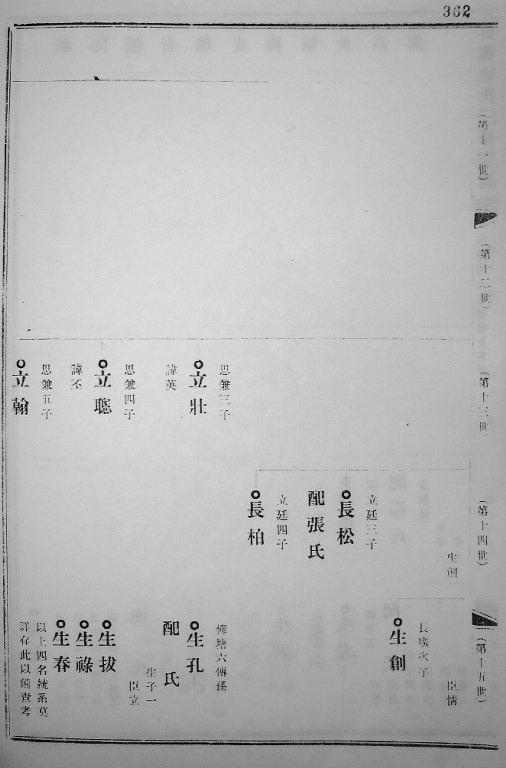 362
(第十一世)
(第十二世)
(第十三世)
思兼三子
立壯
諱英
思兼四子
立聰
諱丕
思兼五子
立翰
(第十四世)
生創
立廷三子
長松
配張氏
立廷四子
長柏
(第十五世)
臣情
次子
生創
六傳孫
生孔
配 氏
生子一
臣立
生拔
生祿
生春
以上四名統系莫
詳存此以備查考